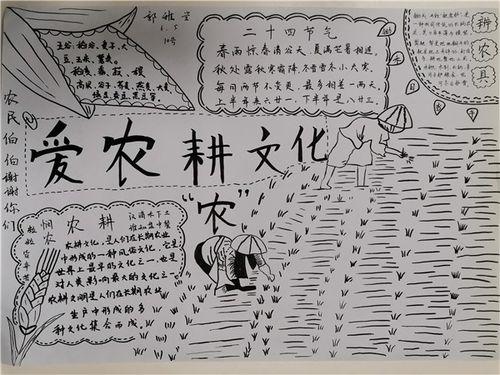 6.5
10号
五谷：稻谷、麦子、大
豆、玉米、薯类。
稻黄、黍、菽、稷
高粱、谷子、荞麦、燕麦、大麦
二十四节气
春雨惊春清谷天，夏满芒暑相连，
秋处露秋寒霜降，冬雪雪冬小大寒。
每月两节不变更，最多相差一两天，
上半年来六廿一，下半年是八廿三。
耕
农
具
农民伯伯谢谢你们
爱农耕文化
“农”
悯农
农耕
汉滴禾下土
谁知盘中餐
粒粒皆辛苦
农耕文化，是人们在长期农业
中形成的一种风俗文化，它是
世界上最早的文化之一，也是
对人类影响最大的文化之一
农耕文明是人们在长期农业
生产中形成的多
种文化集合而成。